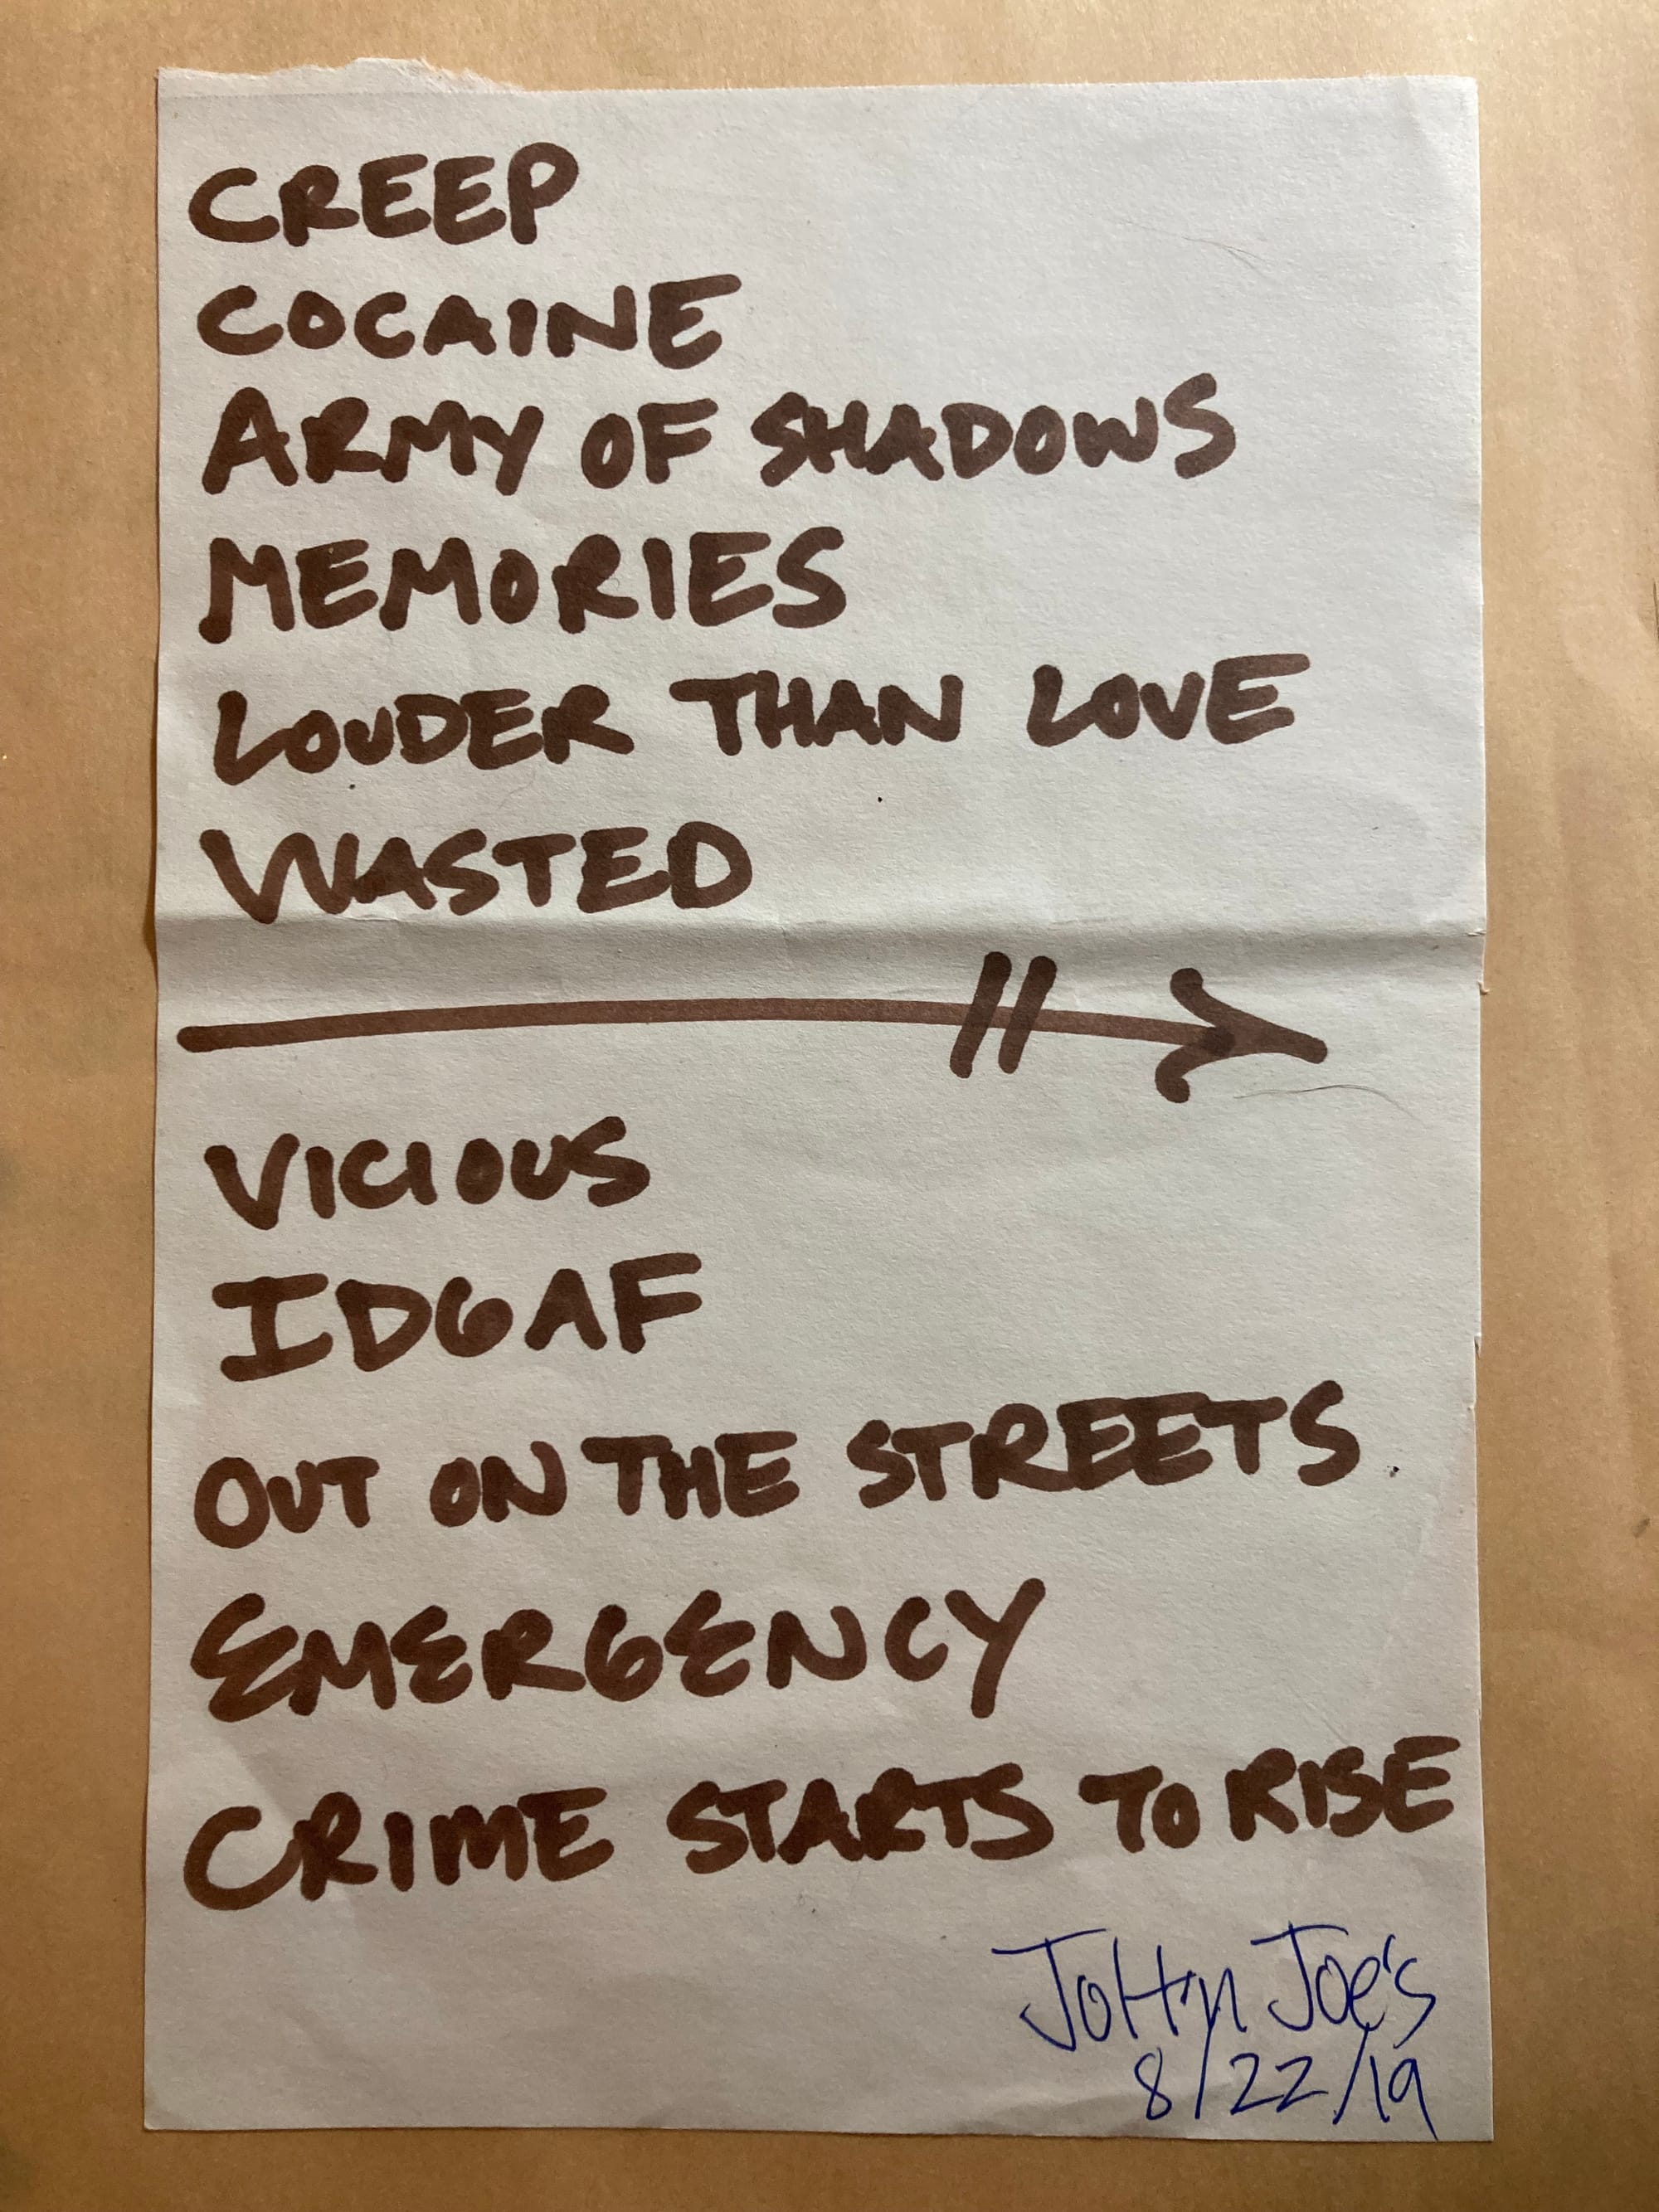 CREEP
COCAINE
ARMY OF SHADOWS
MEMORIES
LOUDER THAN LOVE
WASTED
VICIOUS
IDGAF
OUT ON THE STREETS
EMERGENCY
CRIME STARTS TO RISE
JoHn Joe's
8/22/19